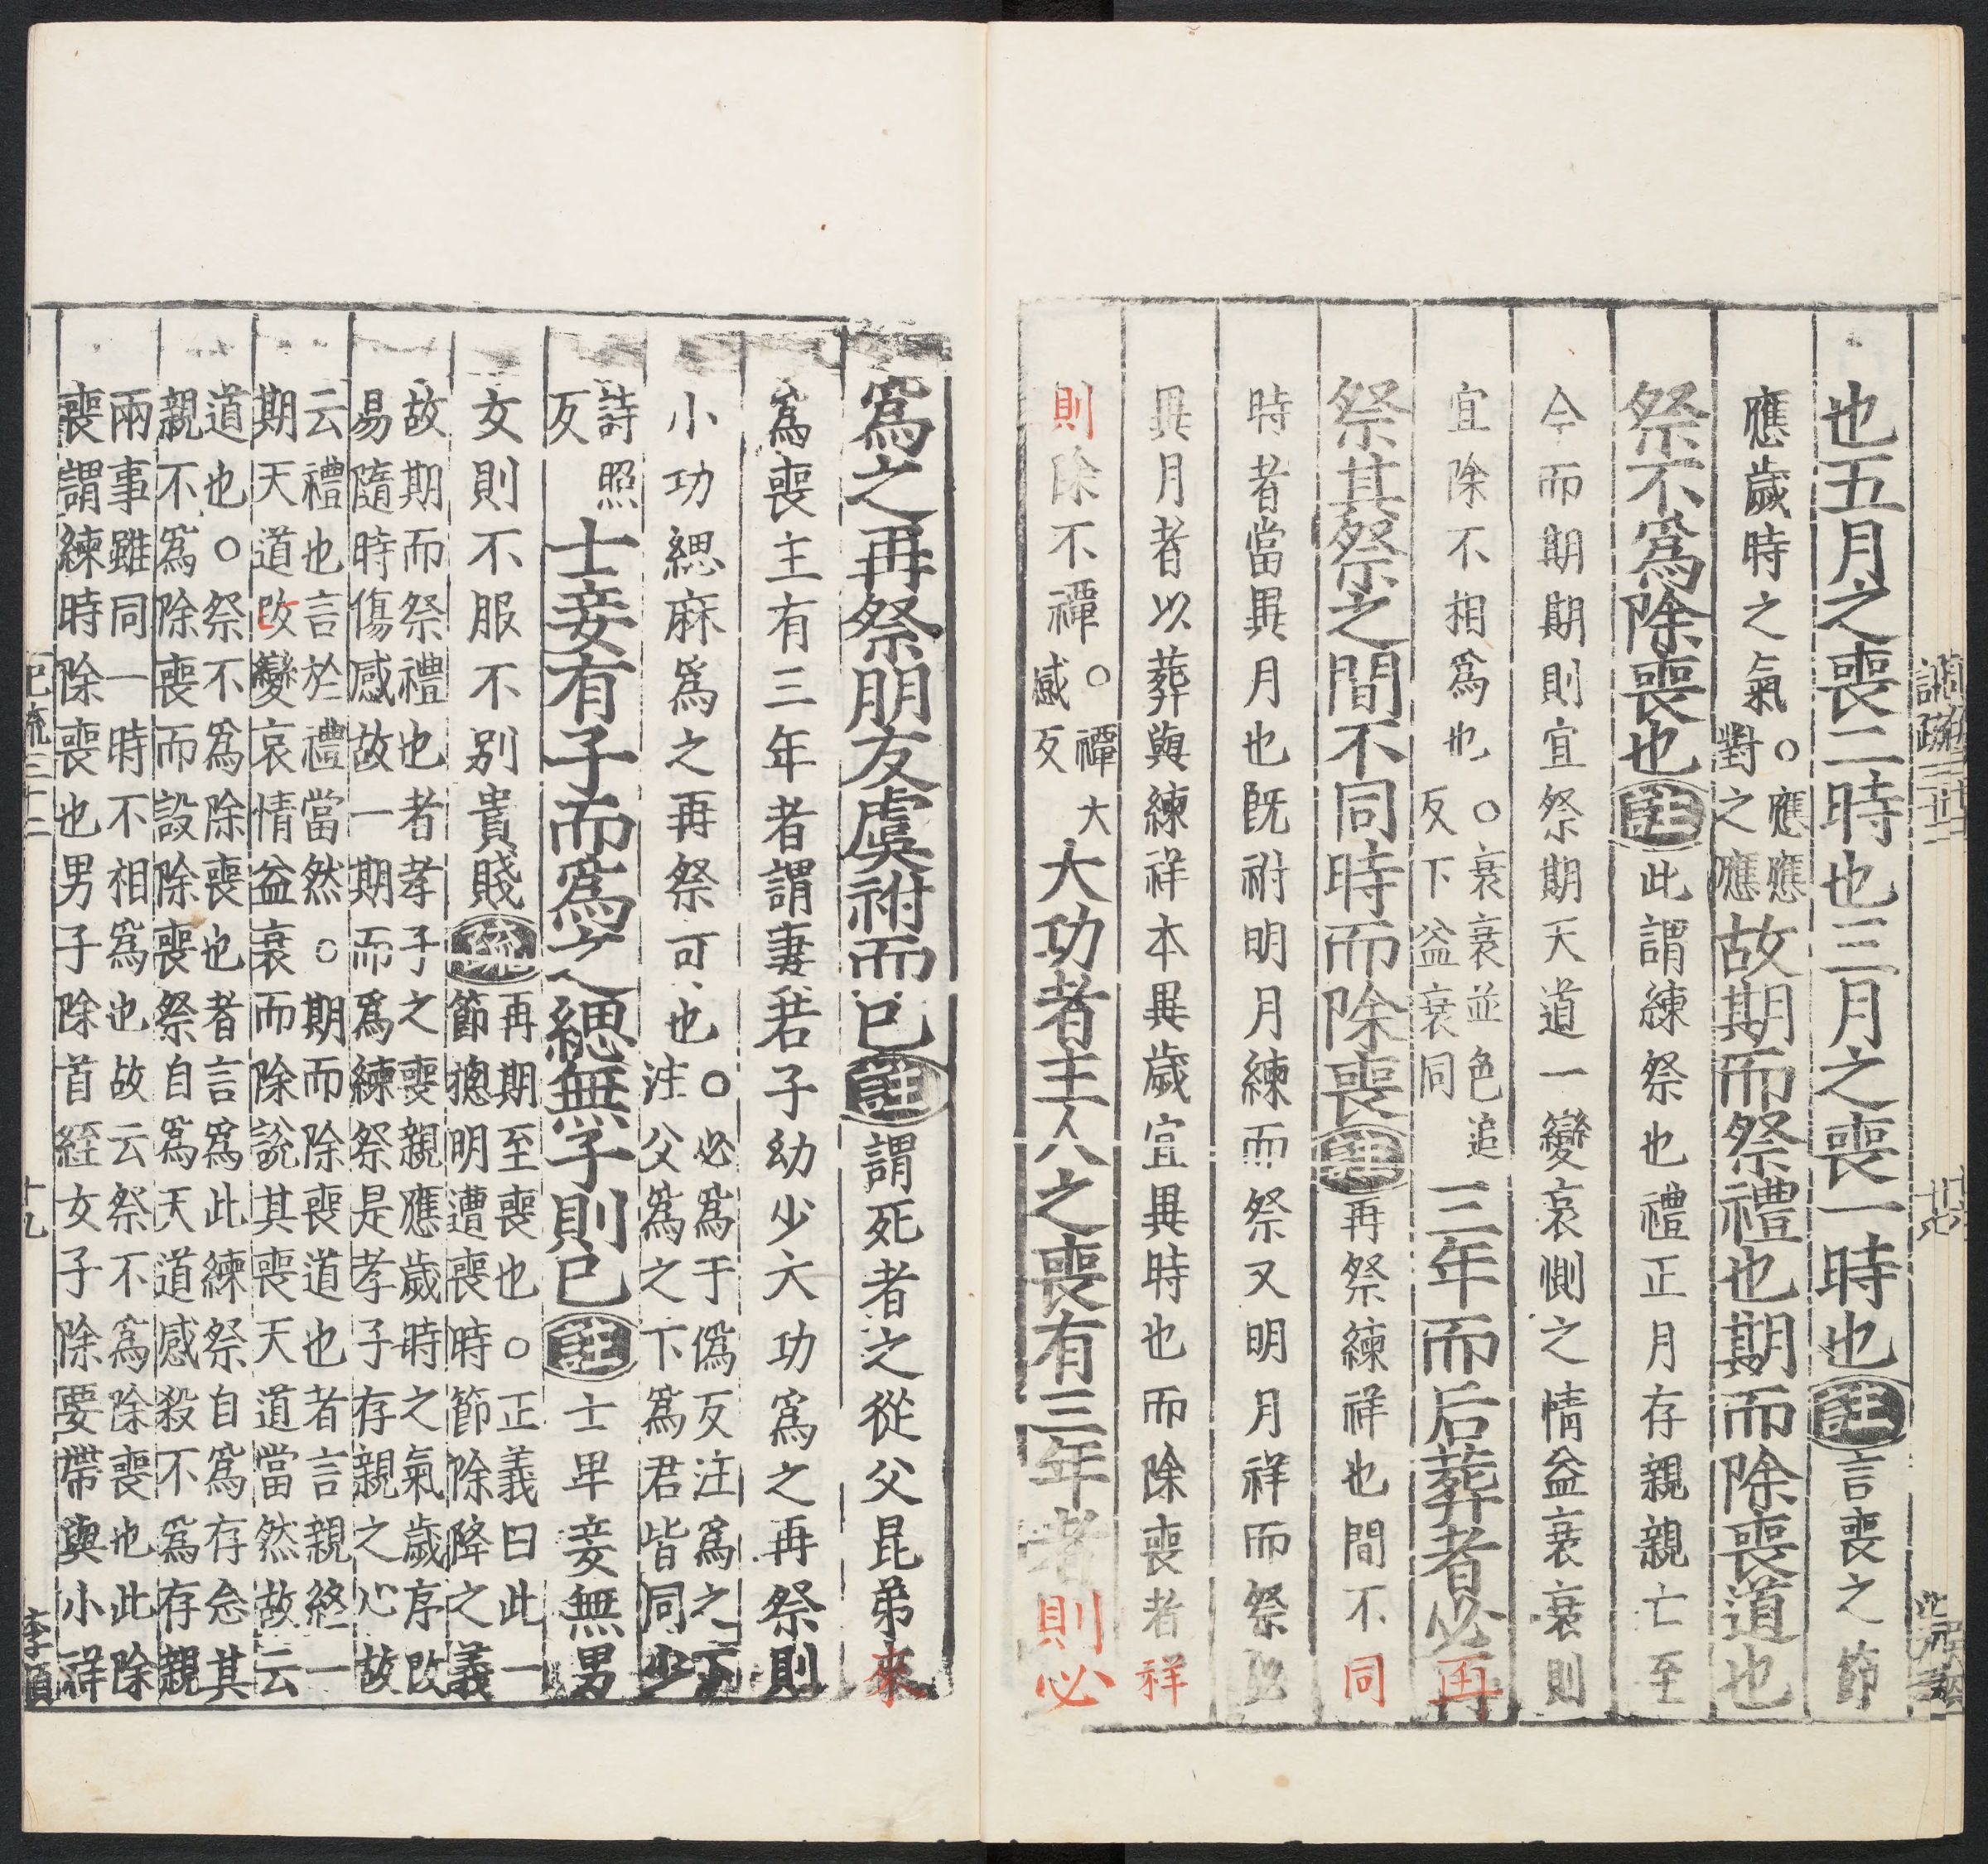 也五月之喪二時也三月之喪一時也註言喪之節
應歲時之氣○應應對之應故期而祭禮也期而除喪道也
祭不爲除喪也註此謂練祭也禮正月存親親亡至
今而期期則宜祭期天道一變哀惻之情益衰衰則
宜除不相爲也○衰衰並色追反下益衰同三年而后葬者必再
祭其祭之間不同時而除喪註再祭練祥也間不同
時者當異月也既祔明月練而祭又明月祥而祭必
異月者以葬與練祥本異歲宜異時也而除喪者祥
則除不禫○禫大感反大功者主人之喪有三年者則必
爲之再祭朋友虞祔而已註謂死者之從父昆弟來
爲喪主有三年者謂妻若子幼少大功爲之再祭則
小功緦麻爲之再祭可也○必爲于僞反注爲之下注父爲之下爲君皆同少
詩照反士妾有子而爲之緦無子則已註士卑妾無男
女則不服不別貴賤疏再期至喪也○正義曰此一節揔明遭喪時節除降之義
故期而祭禮也者孝子之喪親應歲時之氣歲序改易隨時傷感故一期而爲練祭是孝子存親之心故
云禮也言於禮當然○期而除喪道也者言親終一期天道改變哀情益衰而除說其喪天道當然故云
道也○祭不爲除喪也者言爲此練祭自爲存念其親不爲除喪而設除喪祭自爲天道感殺不爲存親
兩事雖同一時不相爲也故云祭不爲除喪也此除喪謂練時除喪也男子除首絰女子除要帶與小祥
記疏三十二
十九
李順